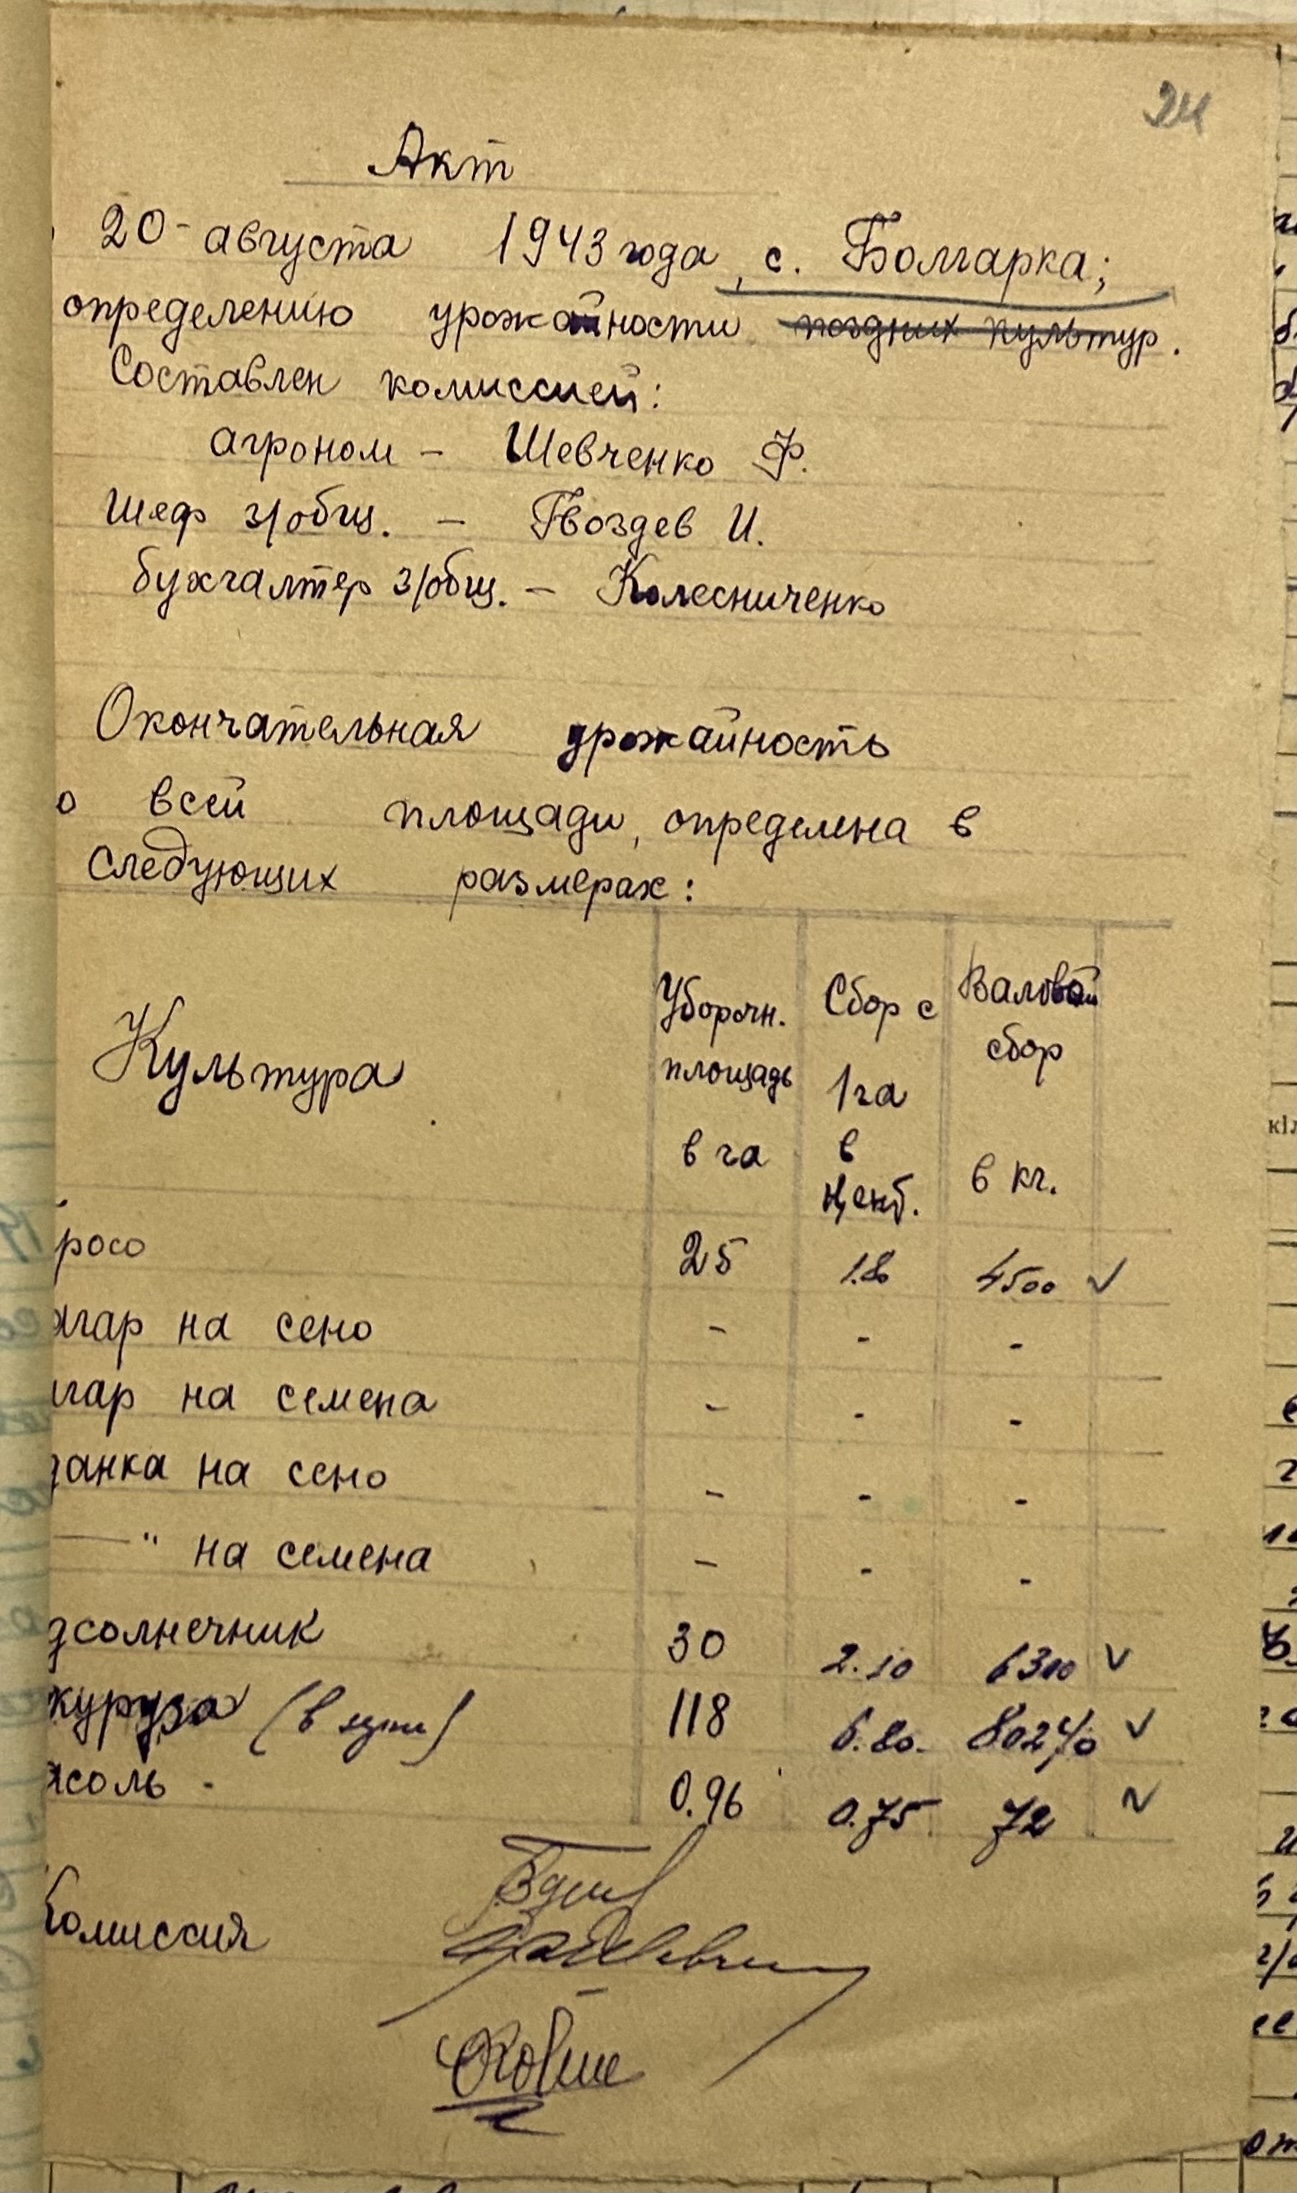 24
Акт
20 - августа 1943 года, с. Болгарка;
определению урожайности поздних культур.
Составлен комиссией:
агроном - Шевченко Ф.
Шеф з/общ. - Гвоздев И.
бухгалтер з/общ. - Колесниченко
Окончательная урожайность
о всей площади, определена в
следующих размерах:
Культура Уборочн. площадь в га Сбор с 1 га в цент. Валовой сбор в кг.
росо 25 1.80 4500 ✓
гар на сено - - -
гар на семена - - -
данка на сено - - -
—"— на семена - - -
дсолнечник 30 2.10 6300 ✓
куруза (в зерне) 118 6.80. 80240 ✓
соль - 0.96 0.75 72 ✓
Комиссия